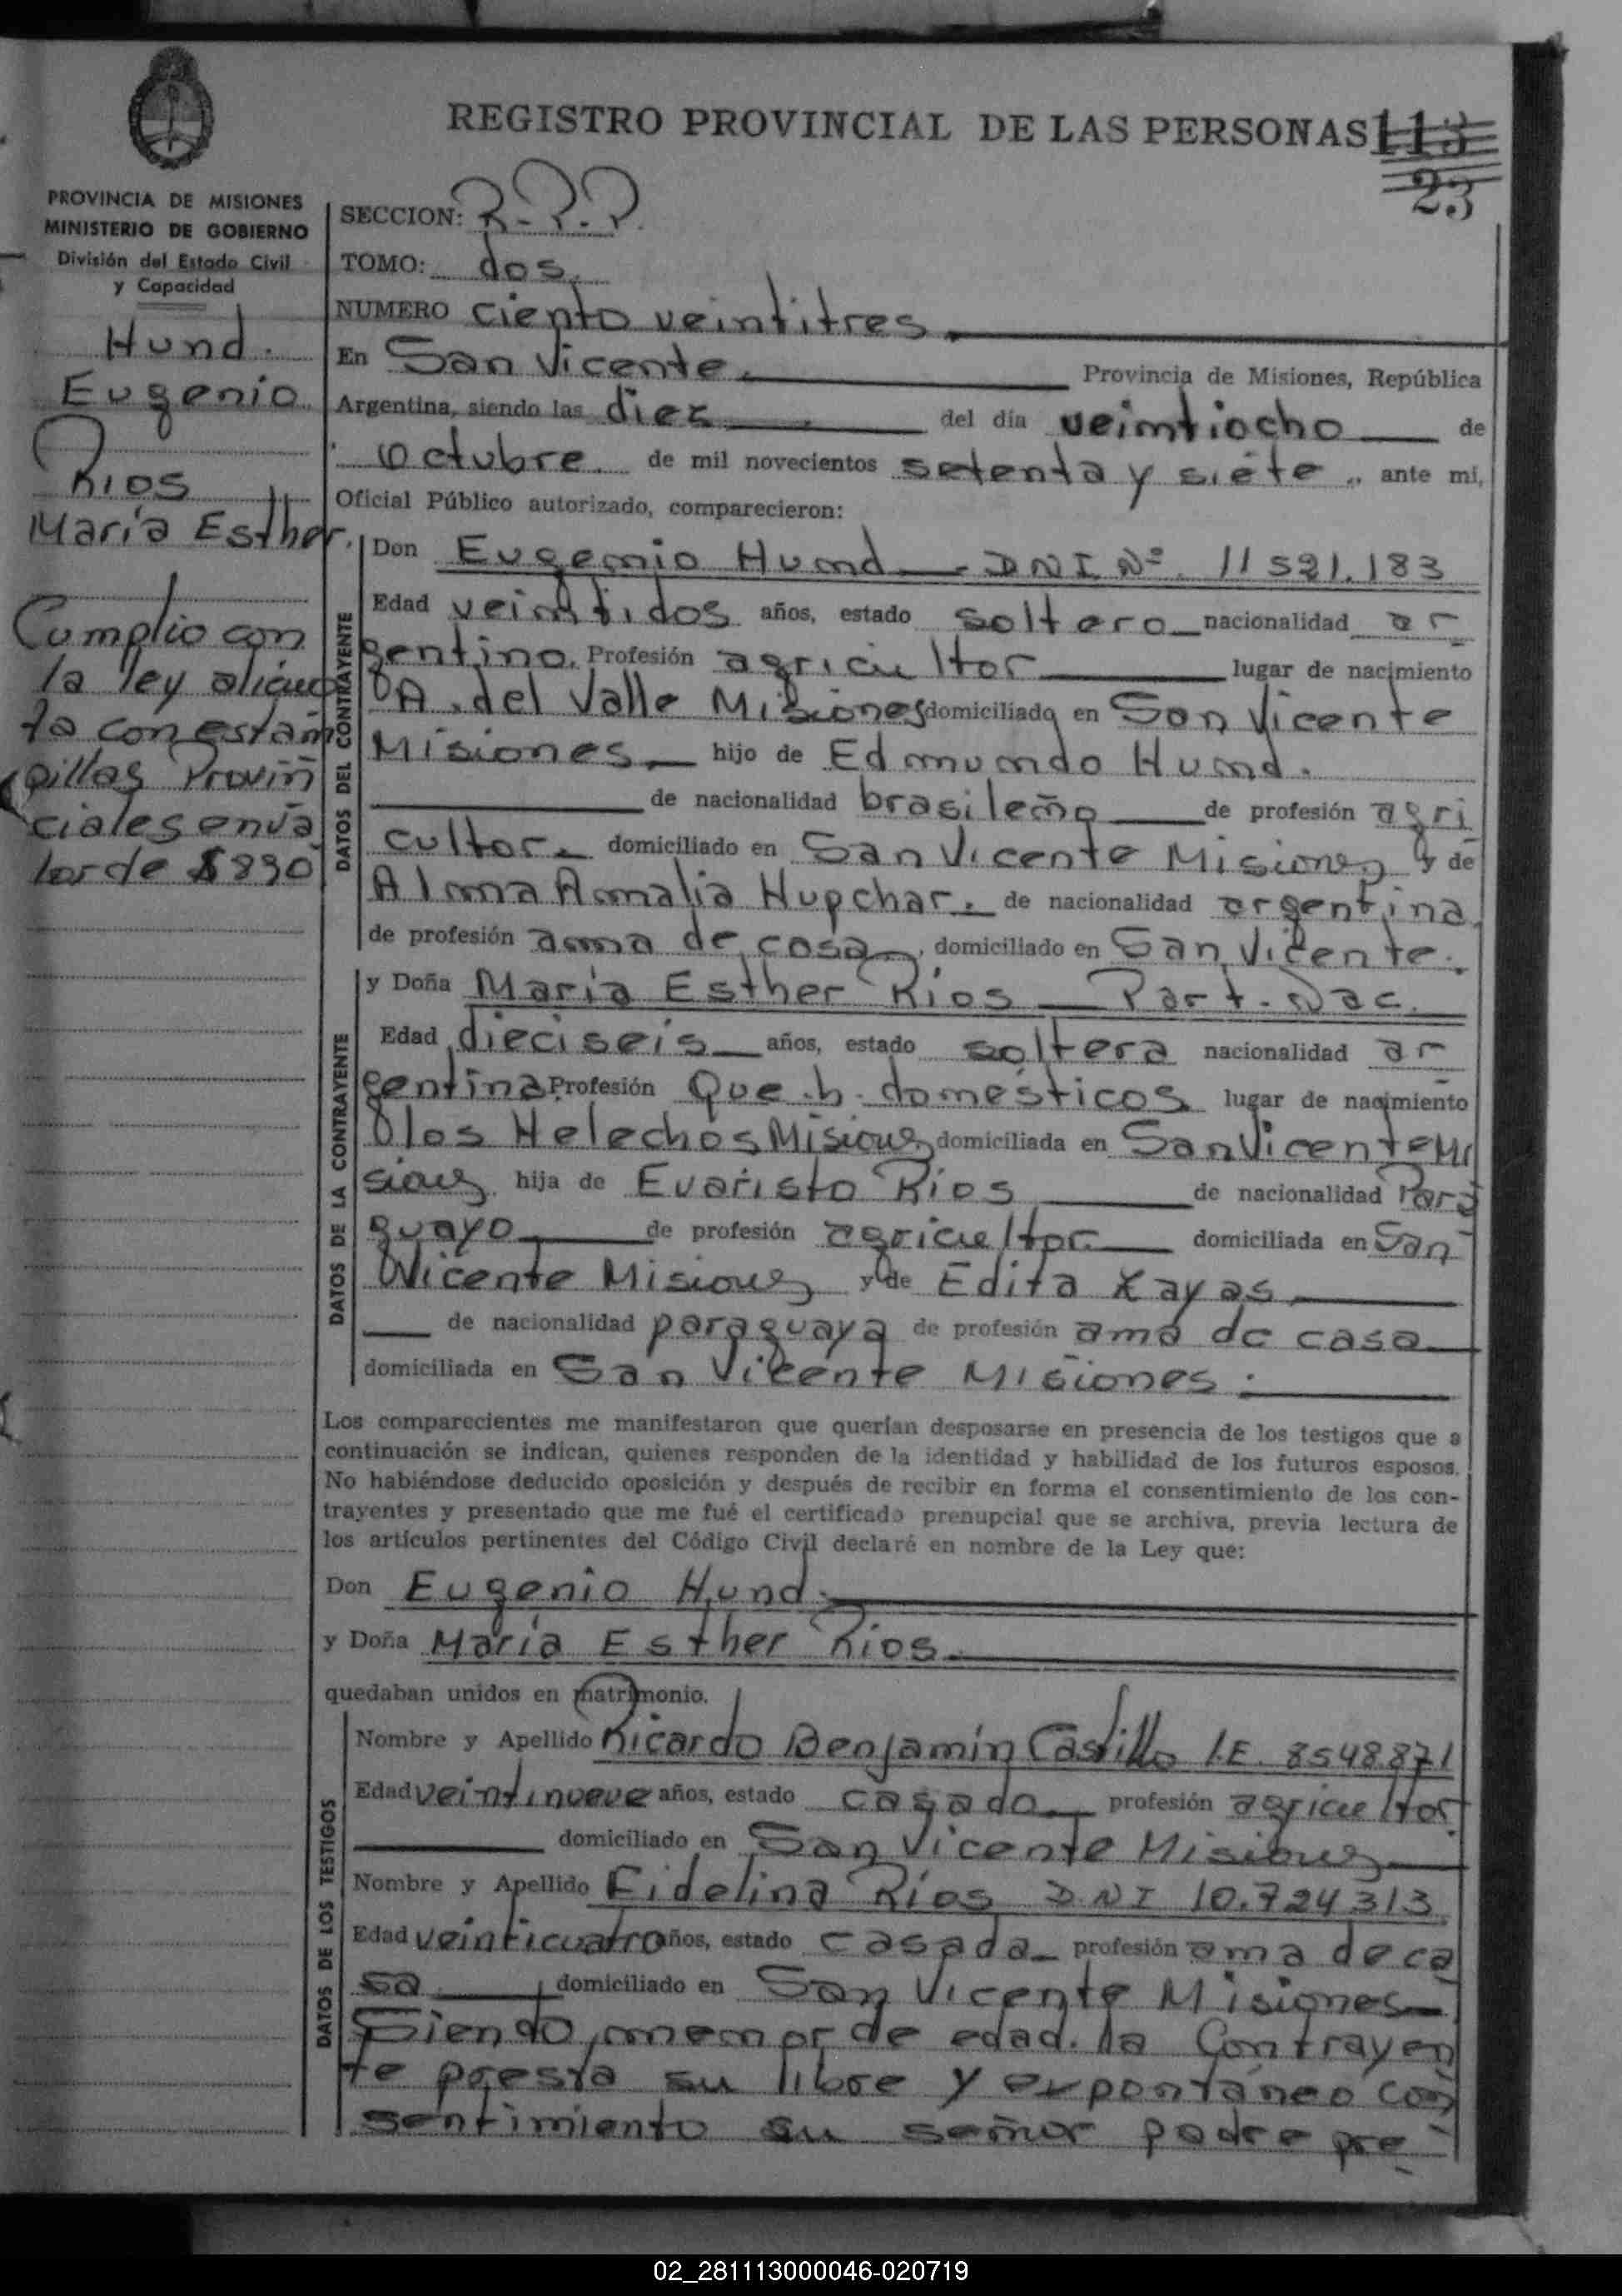 REGISTRO PROVINCIAL DE LAS PERSONAS 113
23
PROVINCIA DE MISIONES
MINISTERIO DE GOBIERNO
División del Estado Civil
y Capacidad
Hund.
Eugenio
Rios
María Esther.
Cumplio con
la ley alicuo
ta con estam
pillas Provin
ciales en va
lor de $890
SECCION: R.P.P.
TOMO: dos.
NUMERO ciento veintitres
En San Vicente. Provincia de Misiones, República
Argentina, siendo las diez del día veintiocho de
octubre. de mil novecientos setenta y siete., ante mi,
Oficial Público autorizado, comparecieron:
DATOS DEL CONTRAYENTE
Don Eugenio Hund - DNI Nº. 11521.183
Edad veintidos años, estado soltero nacionalidad ar
gentino. Profesión agricultor lugar de nacimiento
A. del Valle Misiones domiciliado en San Vicente
Misiones hijo de Edmundo Hund.
de nacionalidad brasileño de profesión agri
cultor. domiciliado en San Vicente Misiones y de
Alma Amalia Hupchar. de nacionalidad argentina
de profesión ama de casa, domiciliado en San Vicente.
DATOS DE LA CONTRAYENTE
y Doña María Esther Rios Part. Nac.
Edad dieciseis años, estado soltera nacionalidad ar
gentina. Profesión Que.h. domésticos lugar de nacimiento
los Helechos Misiones domiciliada en San Vicente Mi
siones hija de Evaristo Rios de nacionalidad Para
guayo de profesión agricultor domiciliada en San
Vicente Misiones y de Edita Xayas
de nacionalidad paraguaya de profesión ama de casa
domiciliada en San Vicente Misiones.
Los comparecientes me manifestaron que querían desposarse en presencia de los testigos que a
continuación se indican, quienes responden de la identidad y habilidad de los futuros esposos.
No habiéndose deducido oposición y después de recibir en forma el consentimiento de los con-
trayentes y presentado que me fué el certificado prenupcial que se archiva, previa lectura de
los artículos pertinentes del Código Civil declaré en nombre de la Ley que:
Don Eugenio Hund.
y Doña María Esther Rios.
quedaban unidos en matrimonio.
DATOS DE LOS TESTIGOS
Nombre y Apellido Ricardo Benjamín Castillo L.E. 8548.871
Edad veintinueve años, estado casado profesión agricultor
domiciliado en San Vicente Misiones
Nombre y Apellido Fidelina Ríos DNI 10.724313
Edad veinticuatro años, estado casada profesión ama de ca
sa domiciliado en San Vicente Misiones
Siendo menor de edad. la Contrayen
te presta su libre y expontáneo con
sentimiento su señor padre pre
02_281113000046-020719